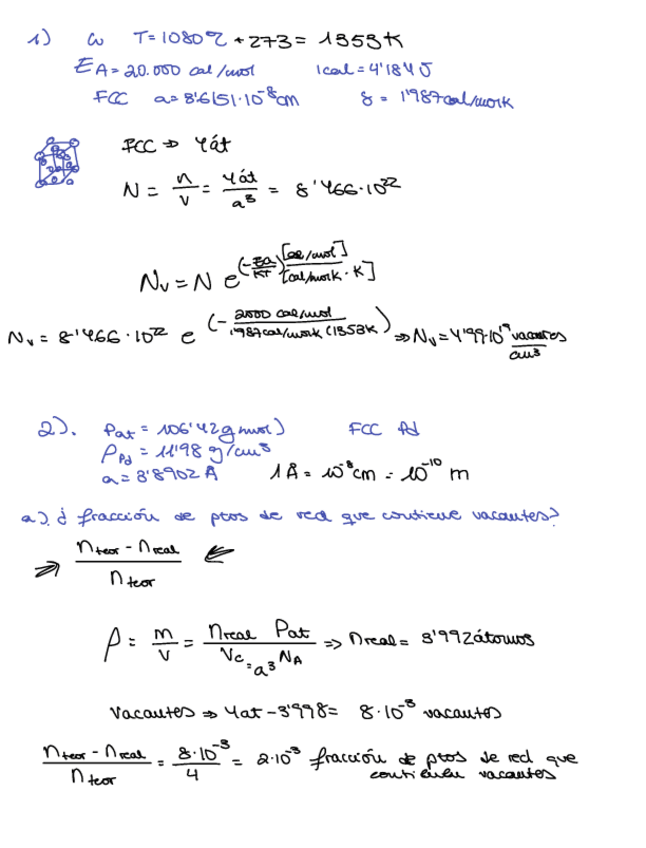 1) Cu T=1080ºC +273= 1353K
EA=20.000 cal/mol 1cal=4'184J
FCC a=3'6151·10⁻⁸cm 8=1'987cal/molK
FCC ⇒ 4át
N = n/V = 4át/a³ = 8'466·10²²
Nv = N e^(-Ea/KT) [cal/mol]/[cal/molK · K]
Nv = 8'466·10²² e^(- 2000 cal/mol / 1'987cal/molK (1353K) ⇒ Nv=4'99·10¹⁹ vacantes/cm³
2). Pat = 106'42g mol) FCC Pd
ρPd = 11'98 g/cm³
a=3'8902Å 1Å = 10⁻⁸cm = 10⁻¹⁰ m
a) ¿ fracción de ptos de red que contiene vacantes?
⇒ nteor - nreal / nteor ⇐
ρ = m/V = nreal Pat / Vc=a³ NA ⇒ nreal= 3'992átomos
Vacantes ⇒ 4at-3'998= 8·10⁻³ vacantes
nteor - nreal / nteor = 8·10⁻³/4 = 2·10⁻³ fracción de ptos de red que
contienen vacantes